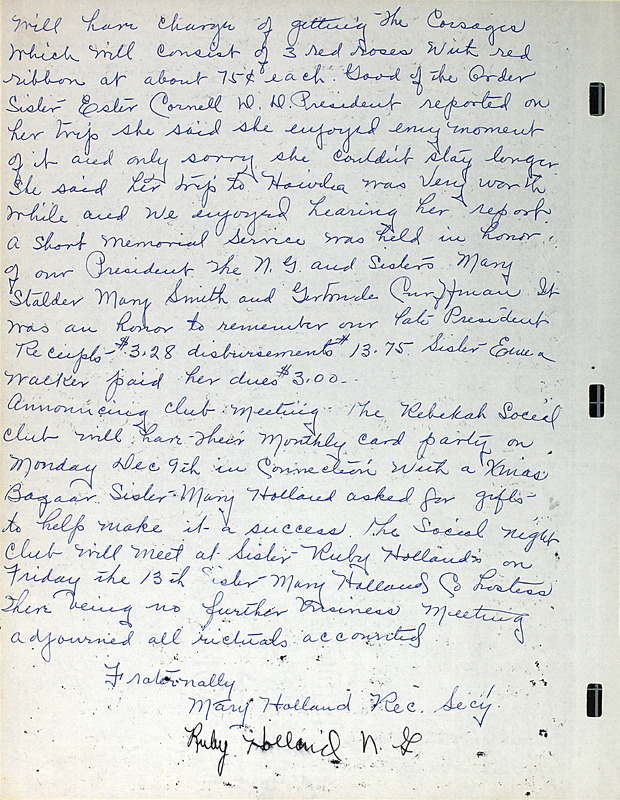 Will have charge of getting the Corsages
which will consist of 3 red roses with red
ribbon at about 75¢ each. Good of the Order
Sister Ester Cornell D. D. President reported on
her trip she said she enjoyed eny moment
of it and only sorry she couldn't stay longer
She said her trip to was very worth
while and we enjoyed hearing her report
a short memorial service was held in honor
of our President the N. G. and Sisters Mary
Stalder Mary Smith and Gertrude It
was an honor to remember our late President
Receipts $3.28 disbursements $13.75. Sister Emma
Walker paid her dues $3.00.
Announcing club meeting. The Rebekah Social
club will have their Monthly card party on
Monday Dec 9th in Connection with a Xmas
Bazaar. Sister Mary Holland asked for gifts
to help make it a success. The Social night
club will meet at Sister Ruby Holland's on
Friday the 13th Sister Mary Holland Co hostess
There being no further business Meeting
adjourned all rictuals accounted
Fraternally
Mary Holland Rec. Secy
Ruby Holland N. G.